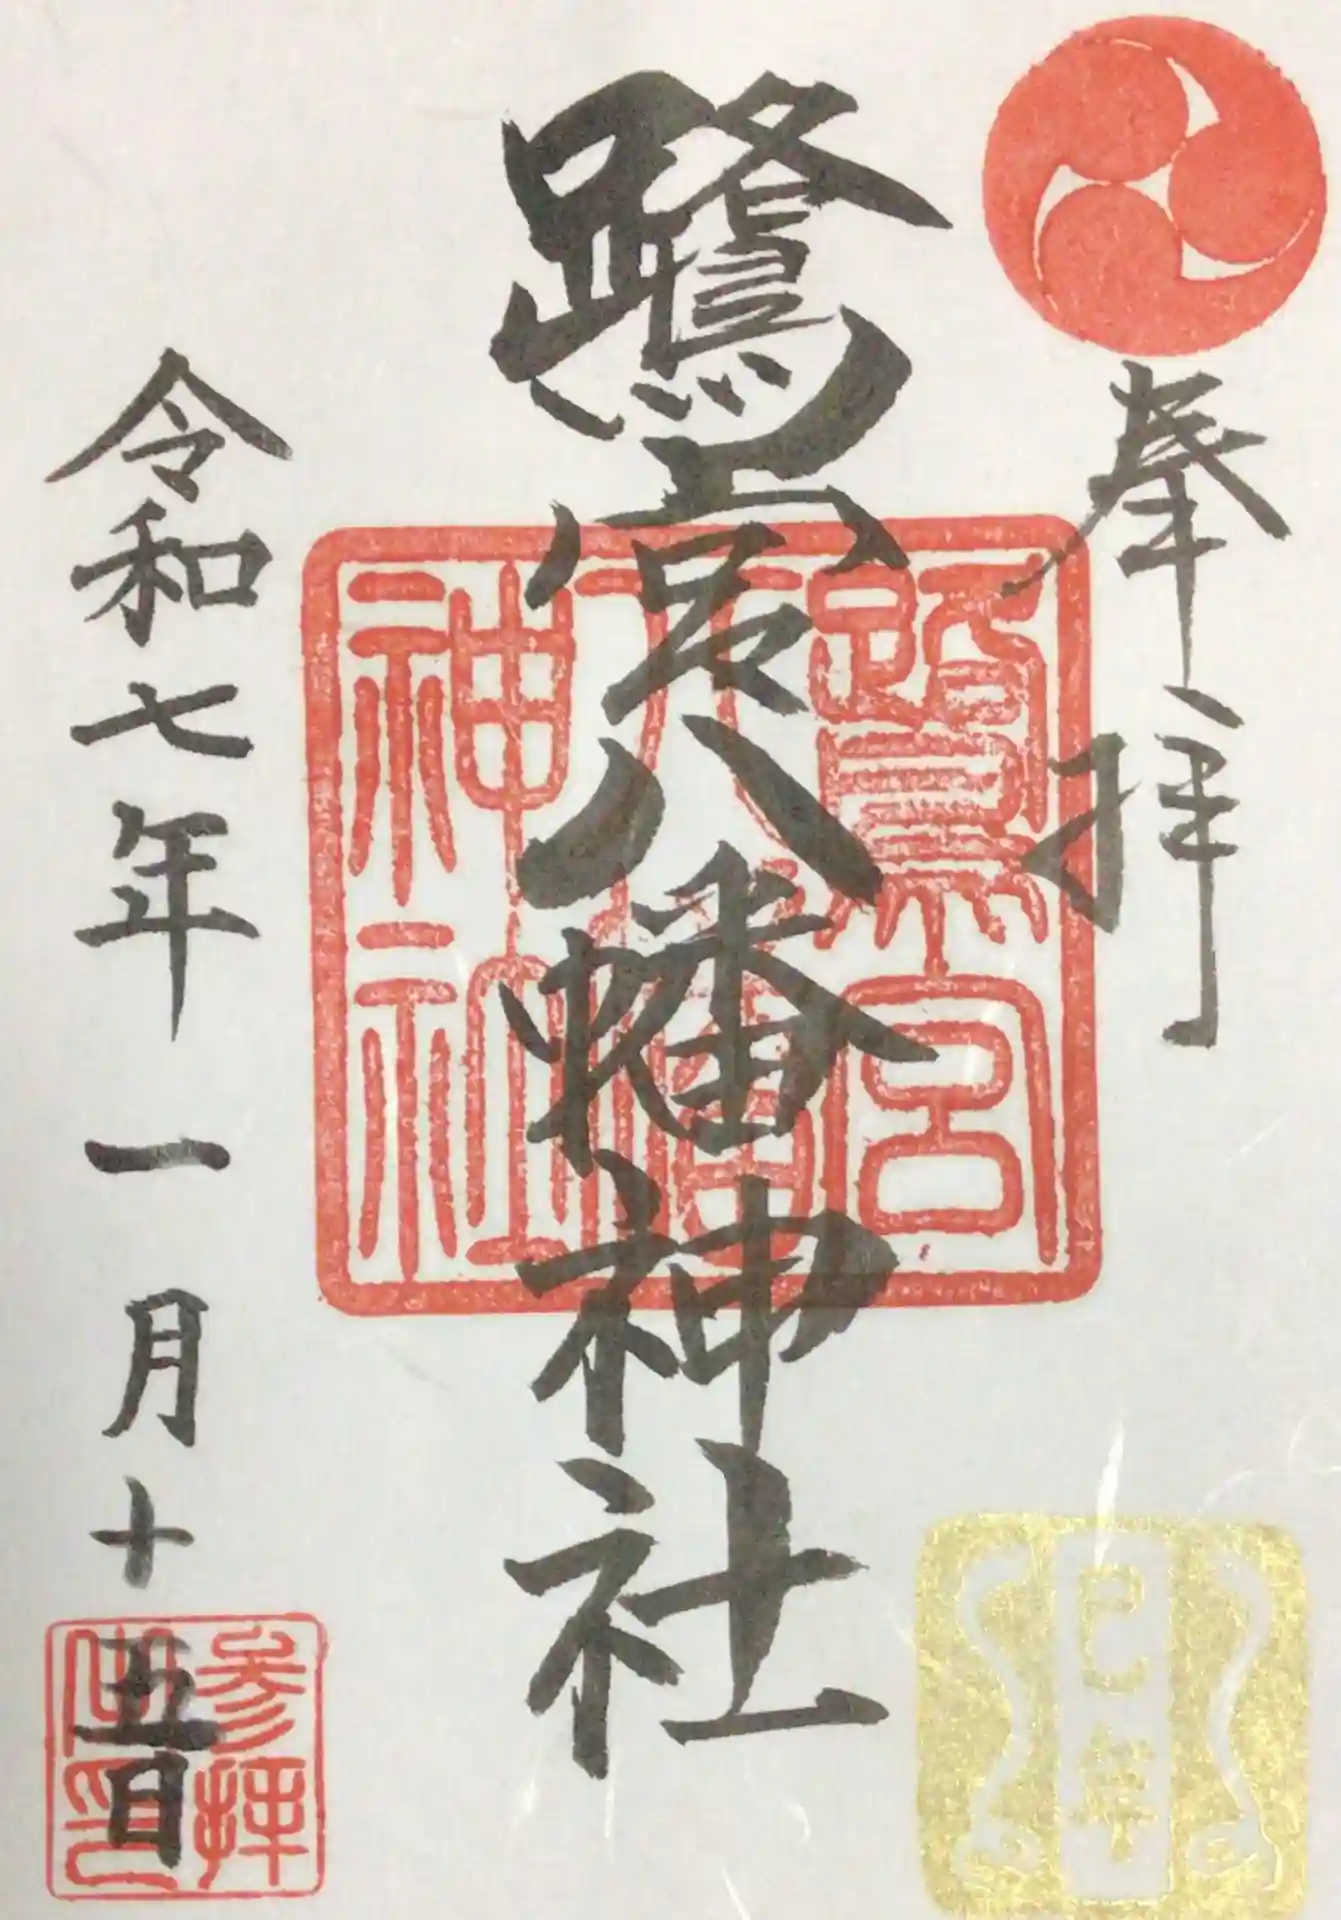 奉拝
鷺宮八幡神社
鷺宮
八幡
神社
令和七年一月十五日
参拝
之印
巳年